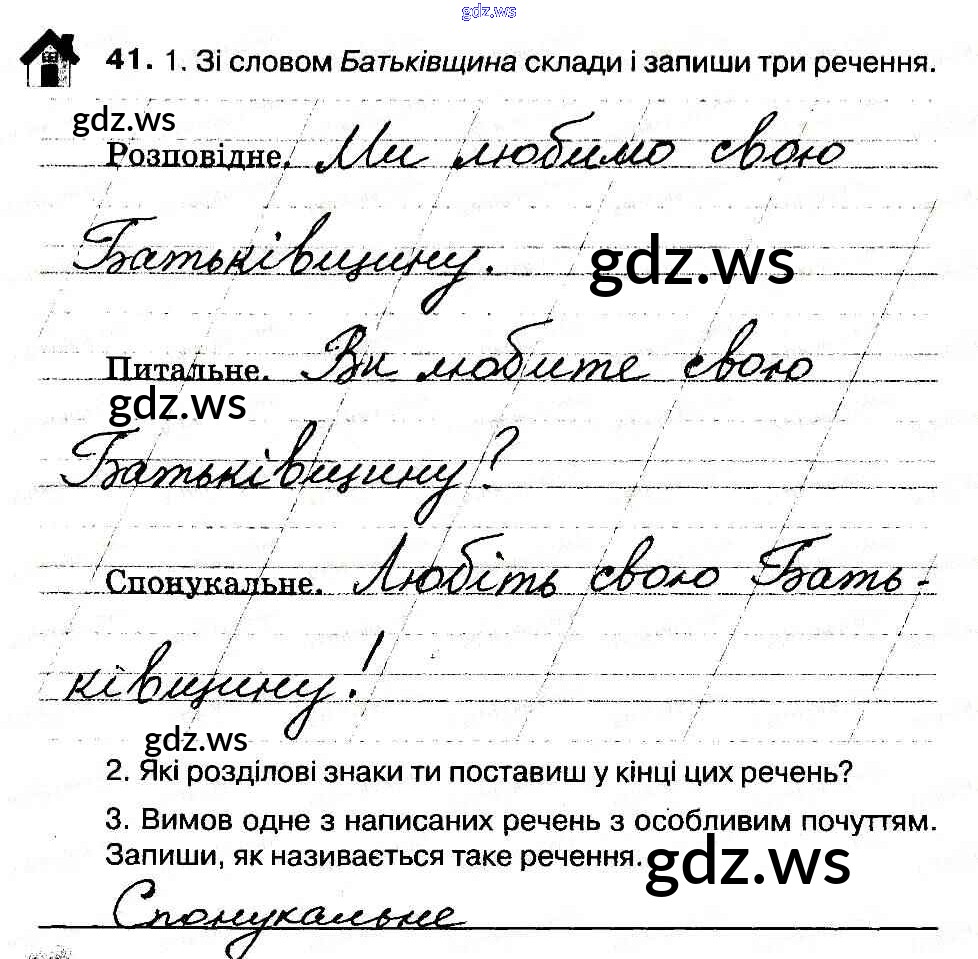 gdz.ws
41. 1. Зі словом Батьківщина склади і запиши три речення.
gdz.ws
Розповідне. Ми любимо свою
Батьківщину.
gdz.ws
Питальне. Ви любите свою
gdz.ws
Батьківщину?
Спонукальне. Любіть свою Бать-
ківщину!
gdz.ws
2. Які розділові знаки ти поставиш у кінці цих речень?
3. Вимов одне з написаних речень з особливим почуттям.
Запиши, як називається таке речення.
gdz.ws
Спонукальне